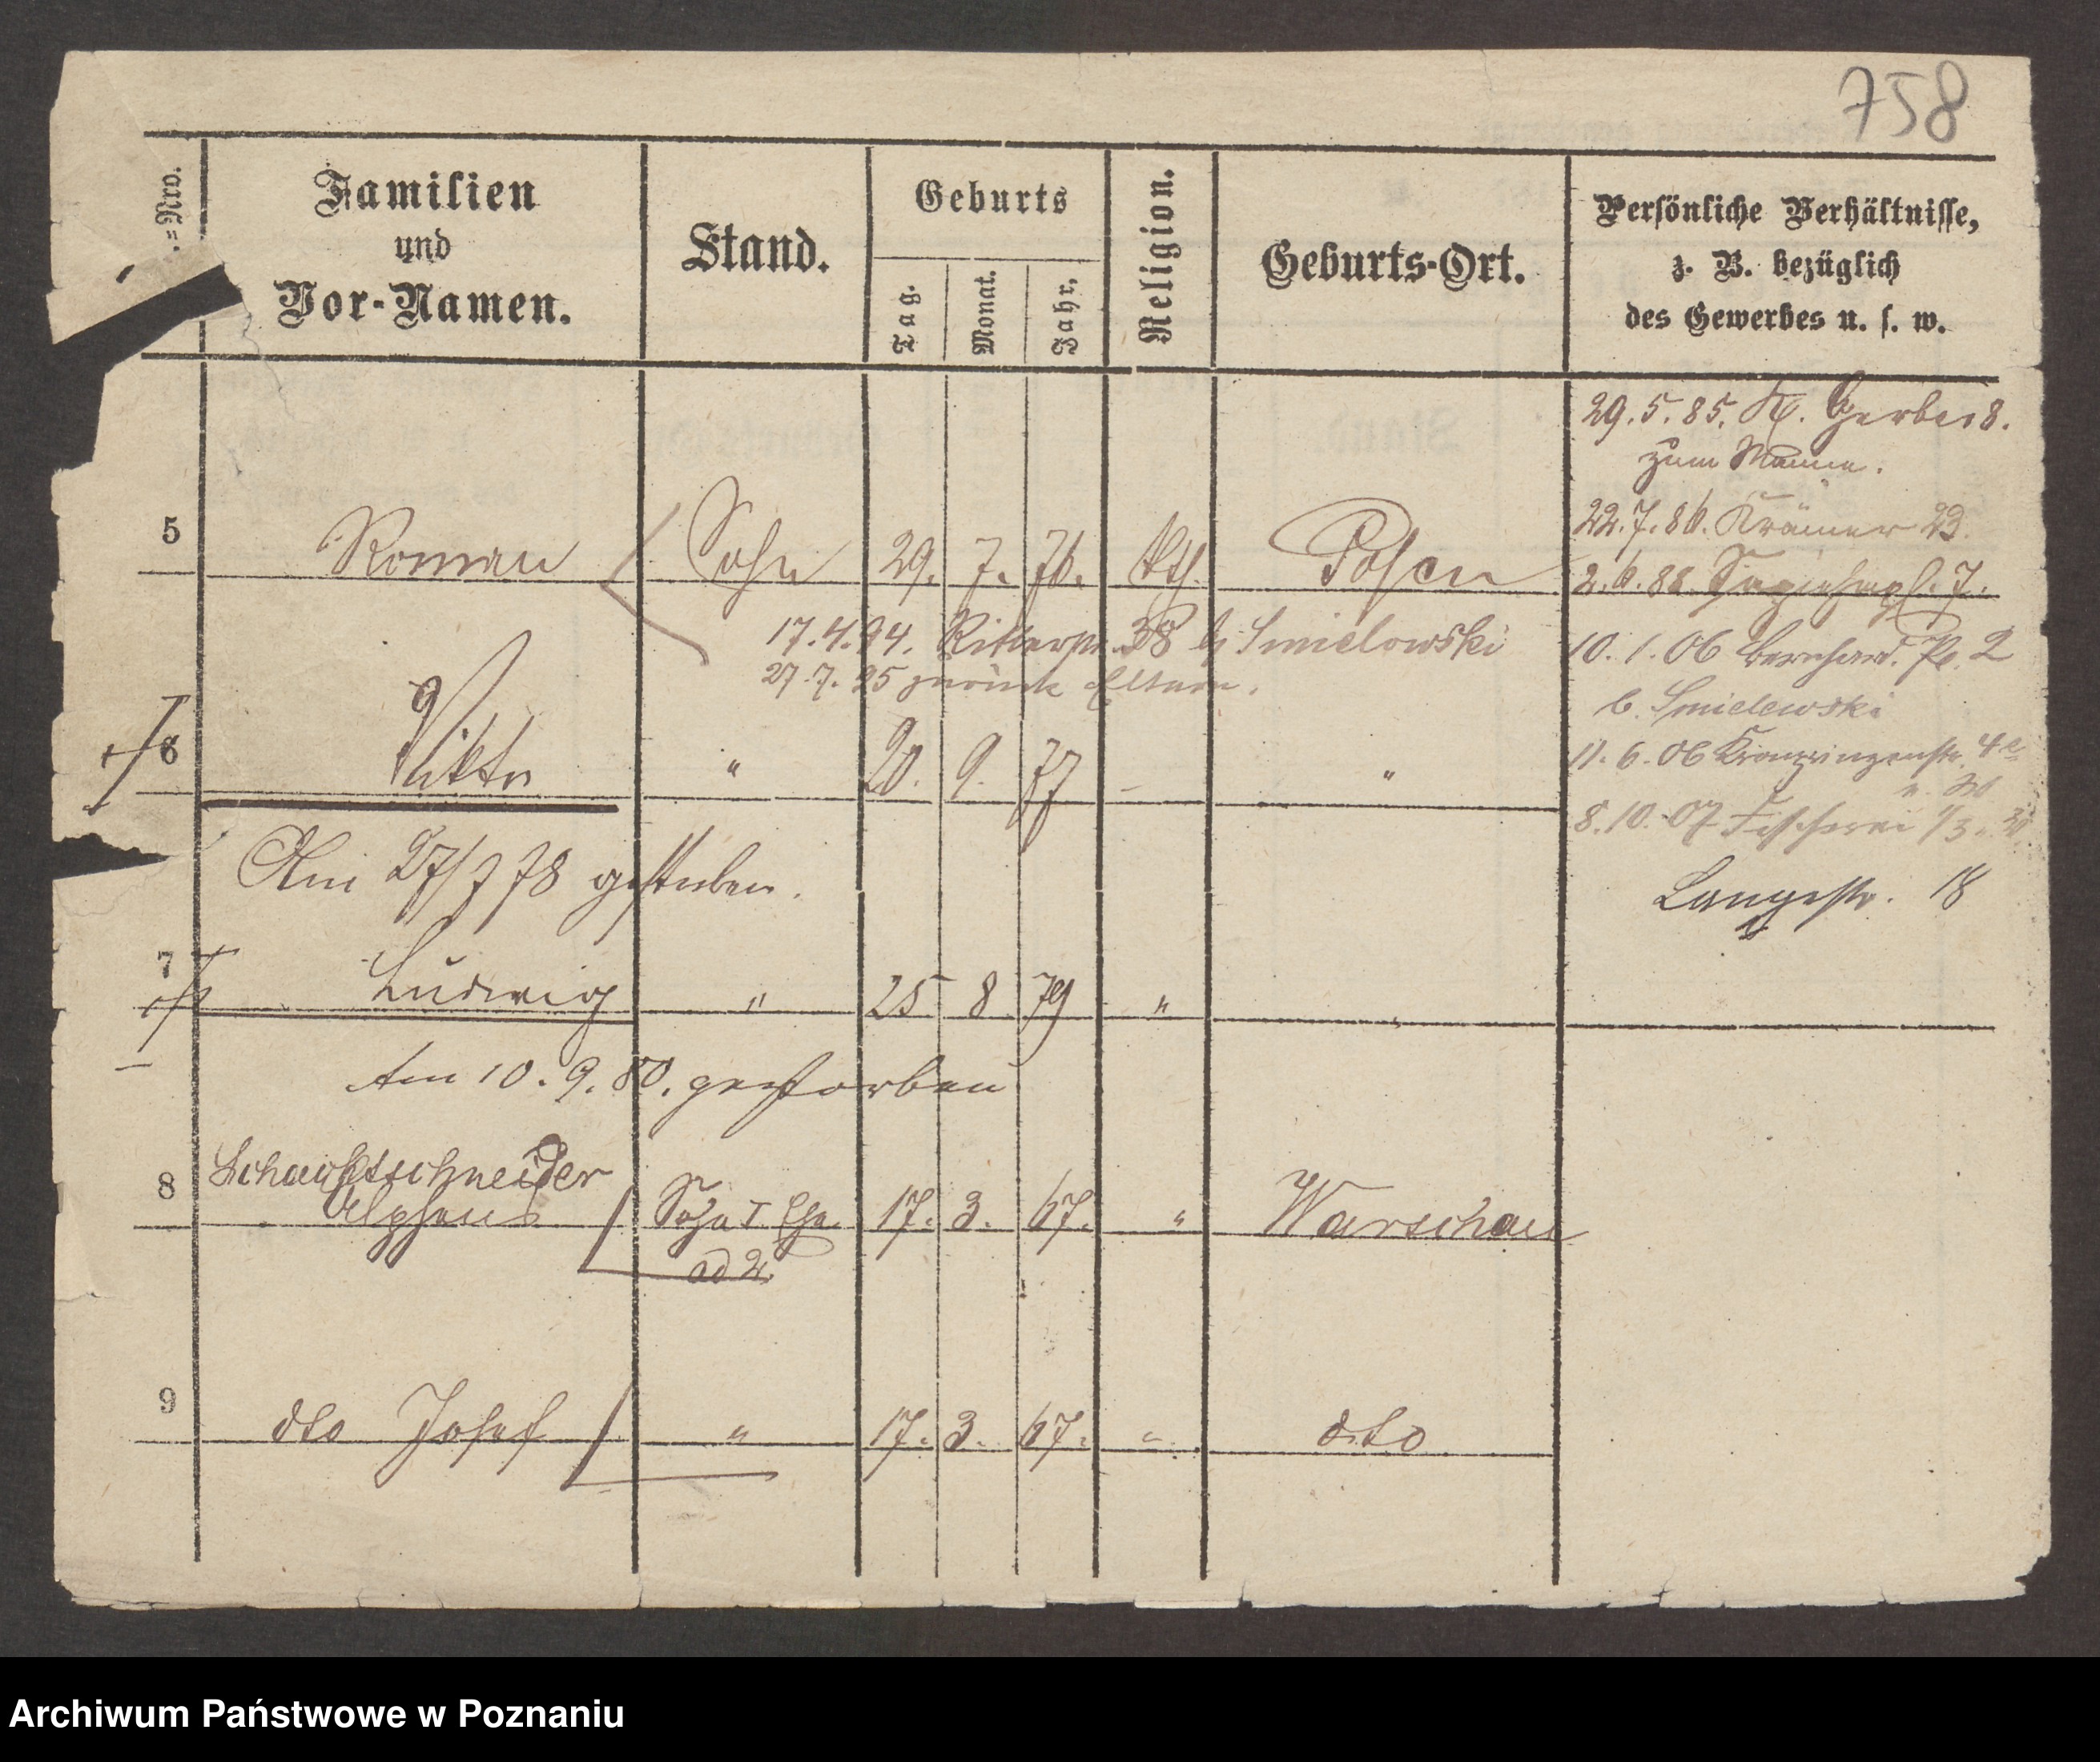 758
.=Nro.
Familien
und
Vor-Namen.
Stand.
Geburts
Tag.
Monat.
Jahr.
Religion.
Geburts-Ort.
Persönliche Verhältnisse,
z. B. bezüglich
des Gewerbes u. s. w.
29.5.85. Kl. Gerber 8.
zum Manne.
22.7.86. Krämer 23.
5 Roman Sohn 29. 7. 76. kth. Posen
2.6.88. 7.
17.4.94. Ritterstr. 38 b Smielowski
27.7.95 zurück Eltern.
10.1.06 Bernhard. Pl. 2
b. Smielowski
6 Viktor " 20. 9. 77 - "
11.6.06 Kronprinzenstr. 4a
n. W
8.10.07 Fischerei 1/3. W
Am 27/7 78 gestorben.
Langestr. 18
7 Ludwig " 25 8 79 " "
Am 10.9.80. gestorben
8 Schaichtschneider
Alphons Sohn I Ehe 17. 3. 67. " Warschau
ad 2.
9 dto Josef " 17. 3. 67. " dto
Archiwum Państwowe w Poznaniu